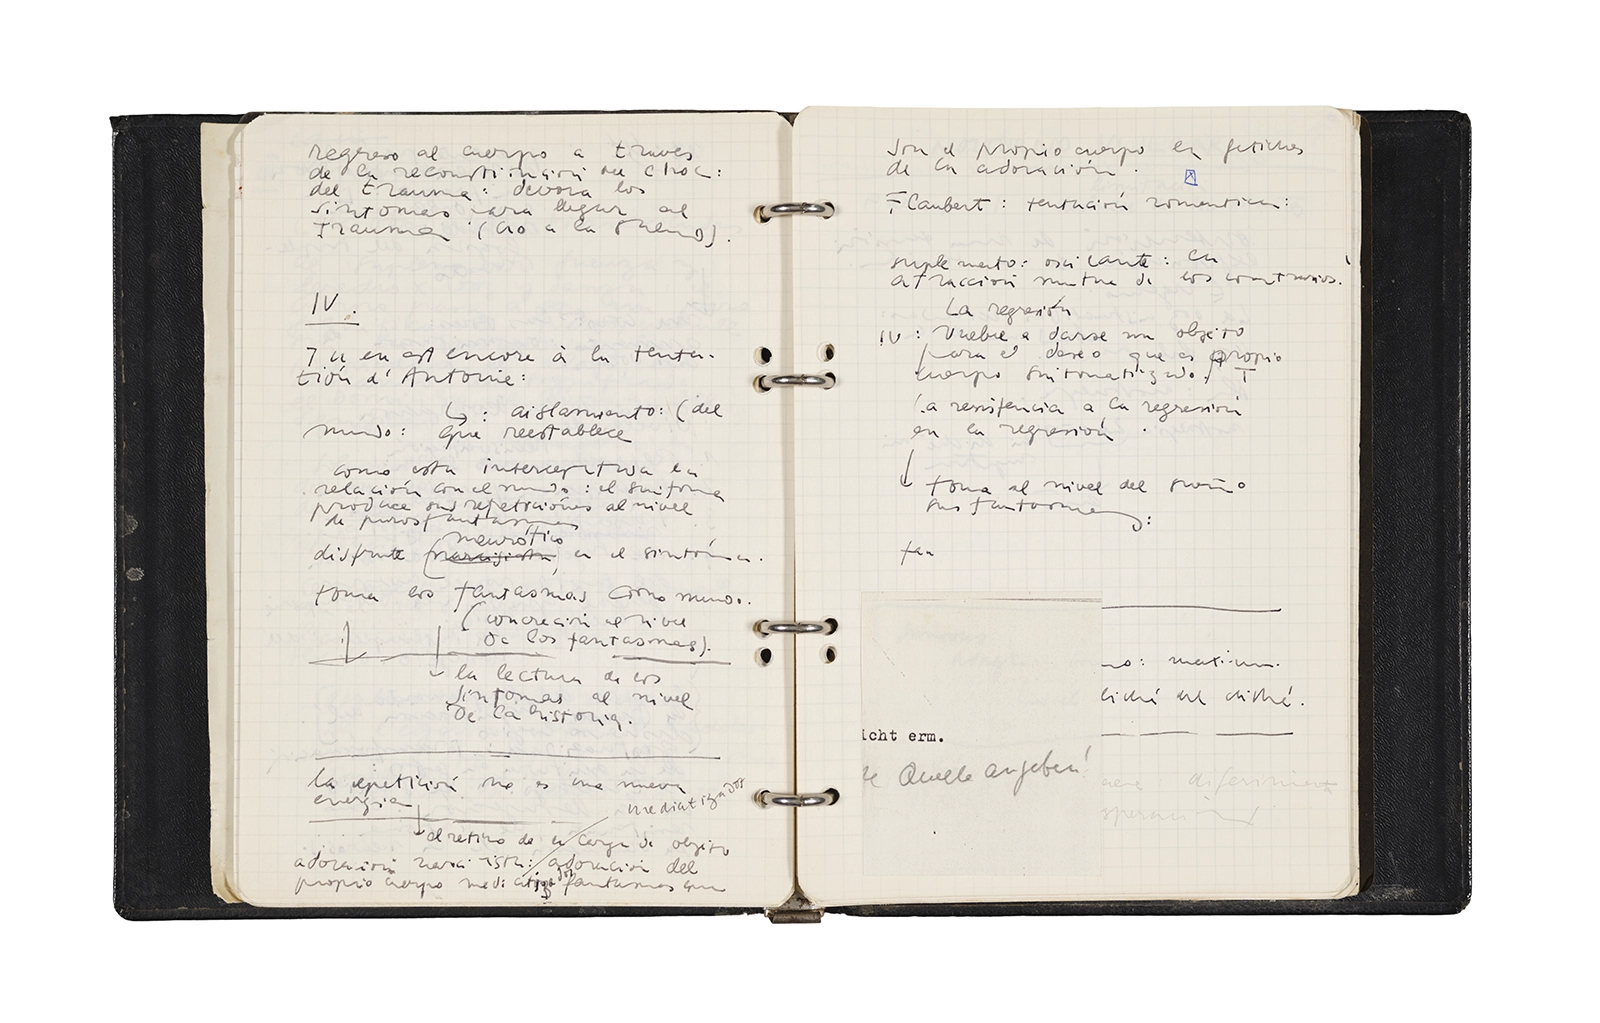 regreso al cuerpo a traves
de la reconstitución del choc:
del trauma: devora los
sintomas para llegar al
trauma
IV.
Tu en est encore à la tenta-
tión d'Antoine:
↳: aislamiento: (del
mundo: que reestablece
como esta interceptada la
relación con el mundo: el sintoma
produce sus repeticiónes al nivel
de puros fantasmas
neurótico
disfrute (narcisista, en el sintóma.
toma los fantasmas como mundo.
(concreción al nivel
de los fantasmas).
la lectura de los
sintomas al nivel
de la historia.
la repetición no es una nueva
energia
mediatizados
el retiro de la carga de objeto
adoración narcisista: adoración del
propio cuerpo fantasmas que
son el propio cuerpo en fetiches
de la adoración.
Flaubert: tentación romantica:
suplemento: oscilante: la
atracción mutua de los contrarios.
La regresión
IV: Vuelve a darse un objeto
para el deseo que es propio
cuerpo sintomatizado.
La resistencia a la regresión
en la regresión.
toma al nivel del sueño
sus fantasmas:
fan
no: maxium.
liché del cliché.
icht erm.
Quelle angeben!